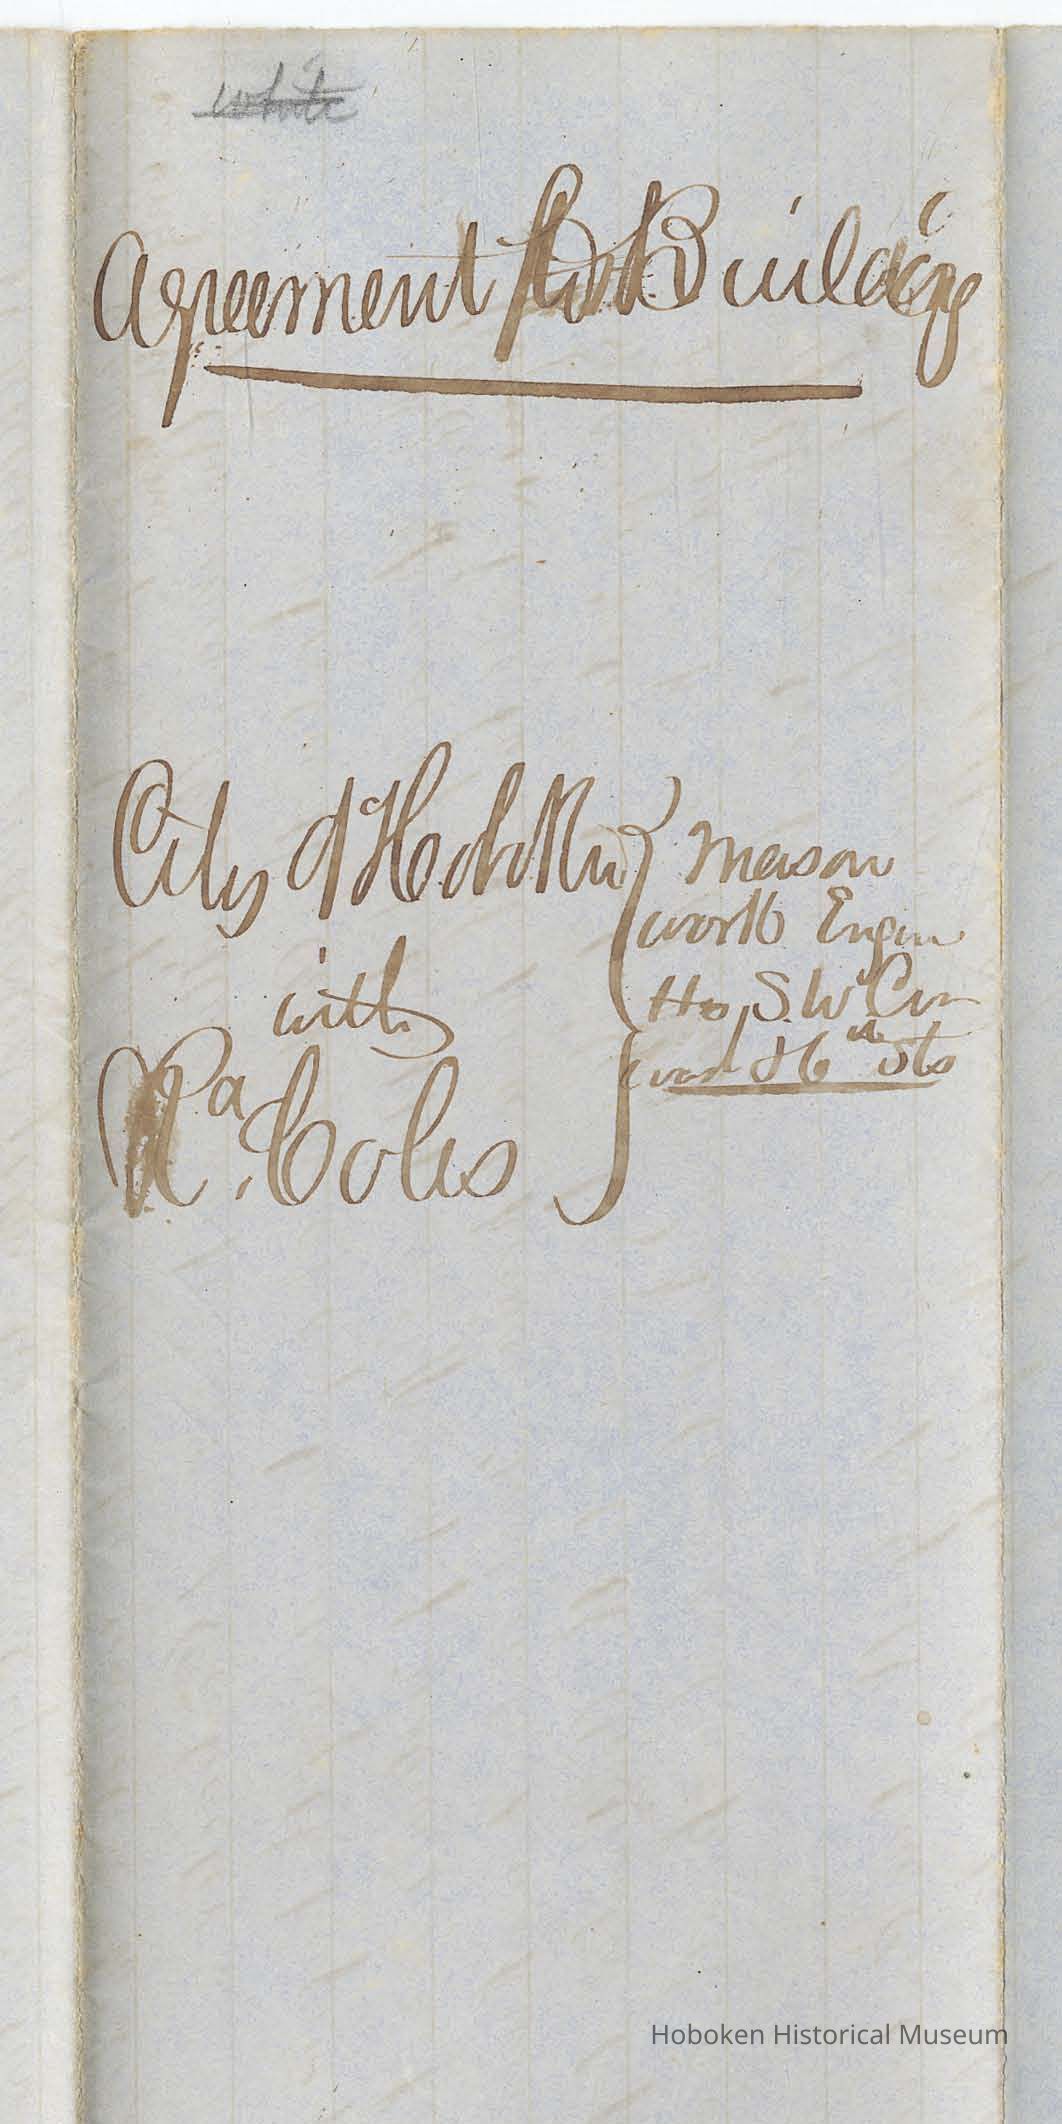 white
Agreement for Building
City of Hoboken
with
Ra. Coles
Mason
work Engine
Ho, S. W. Cor
and 6th Sts
Hoboken Historical Museum